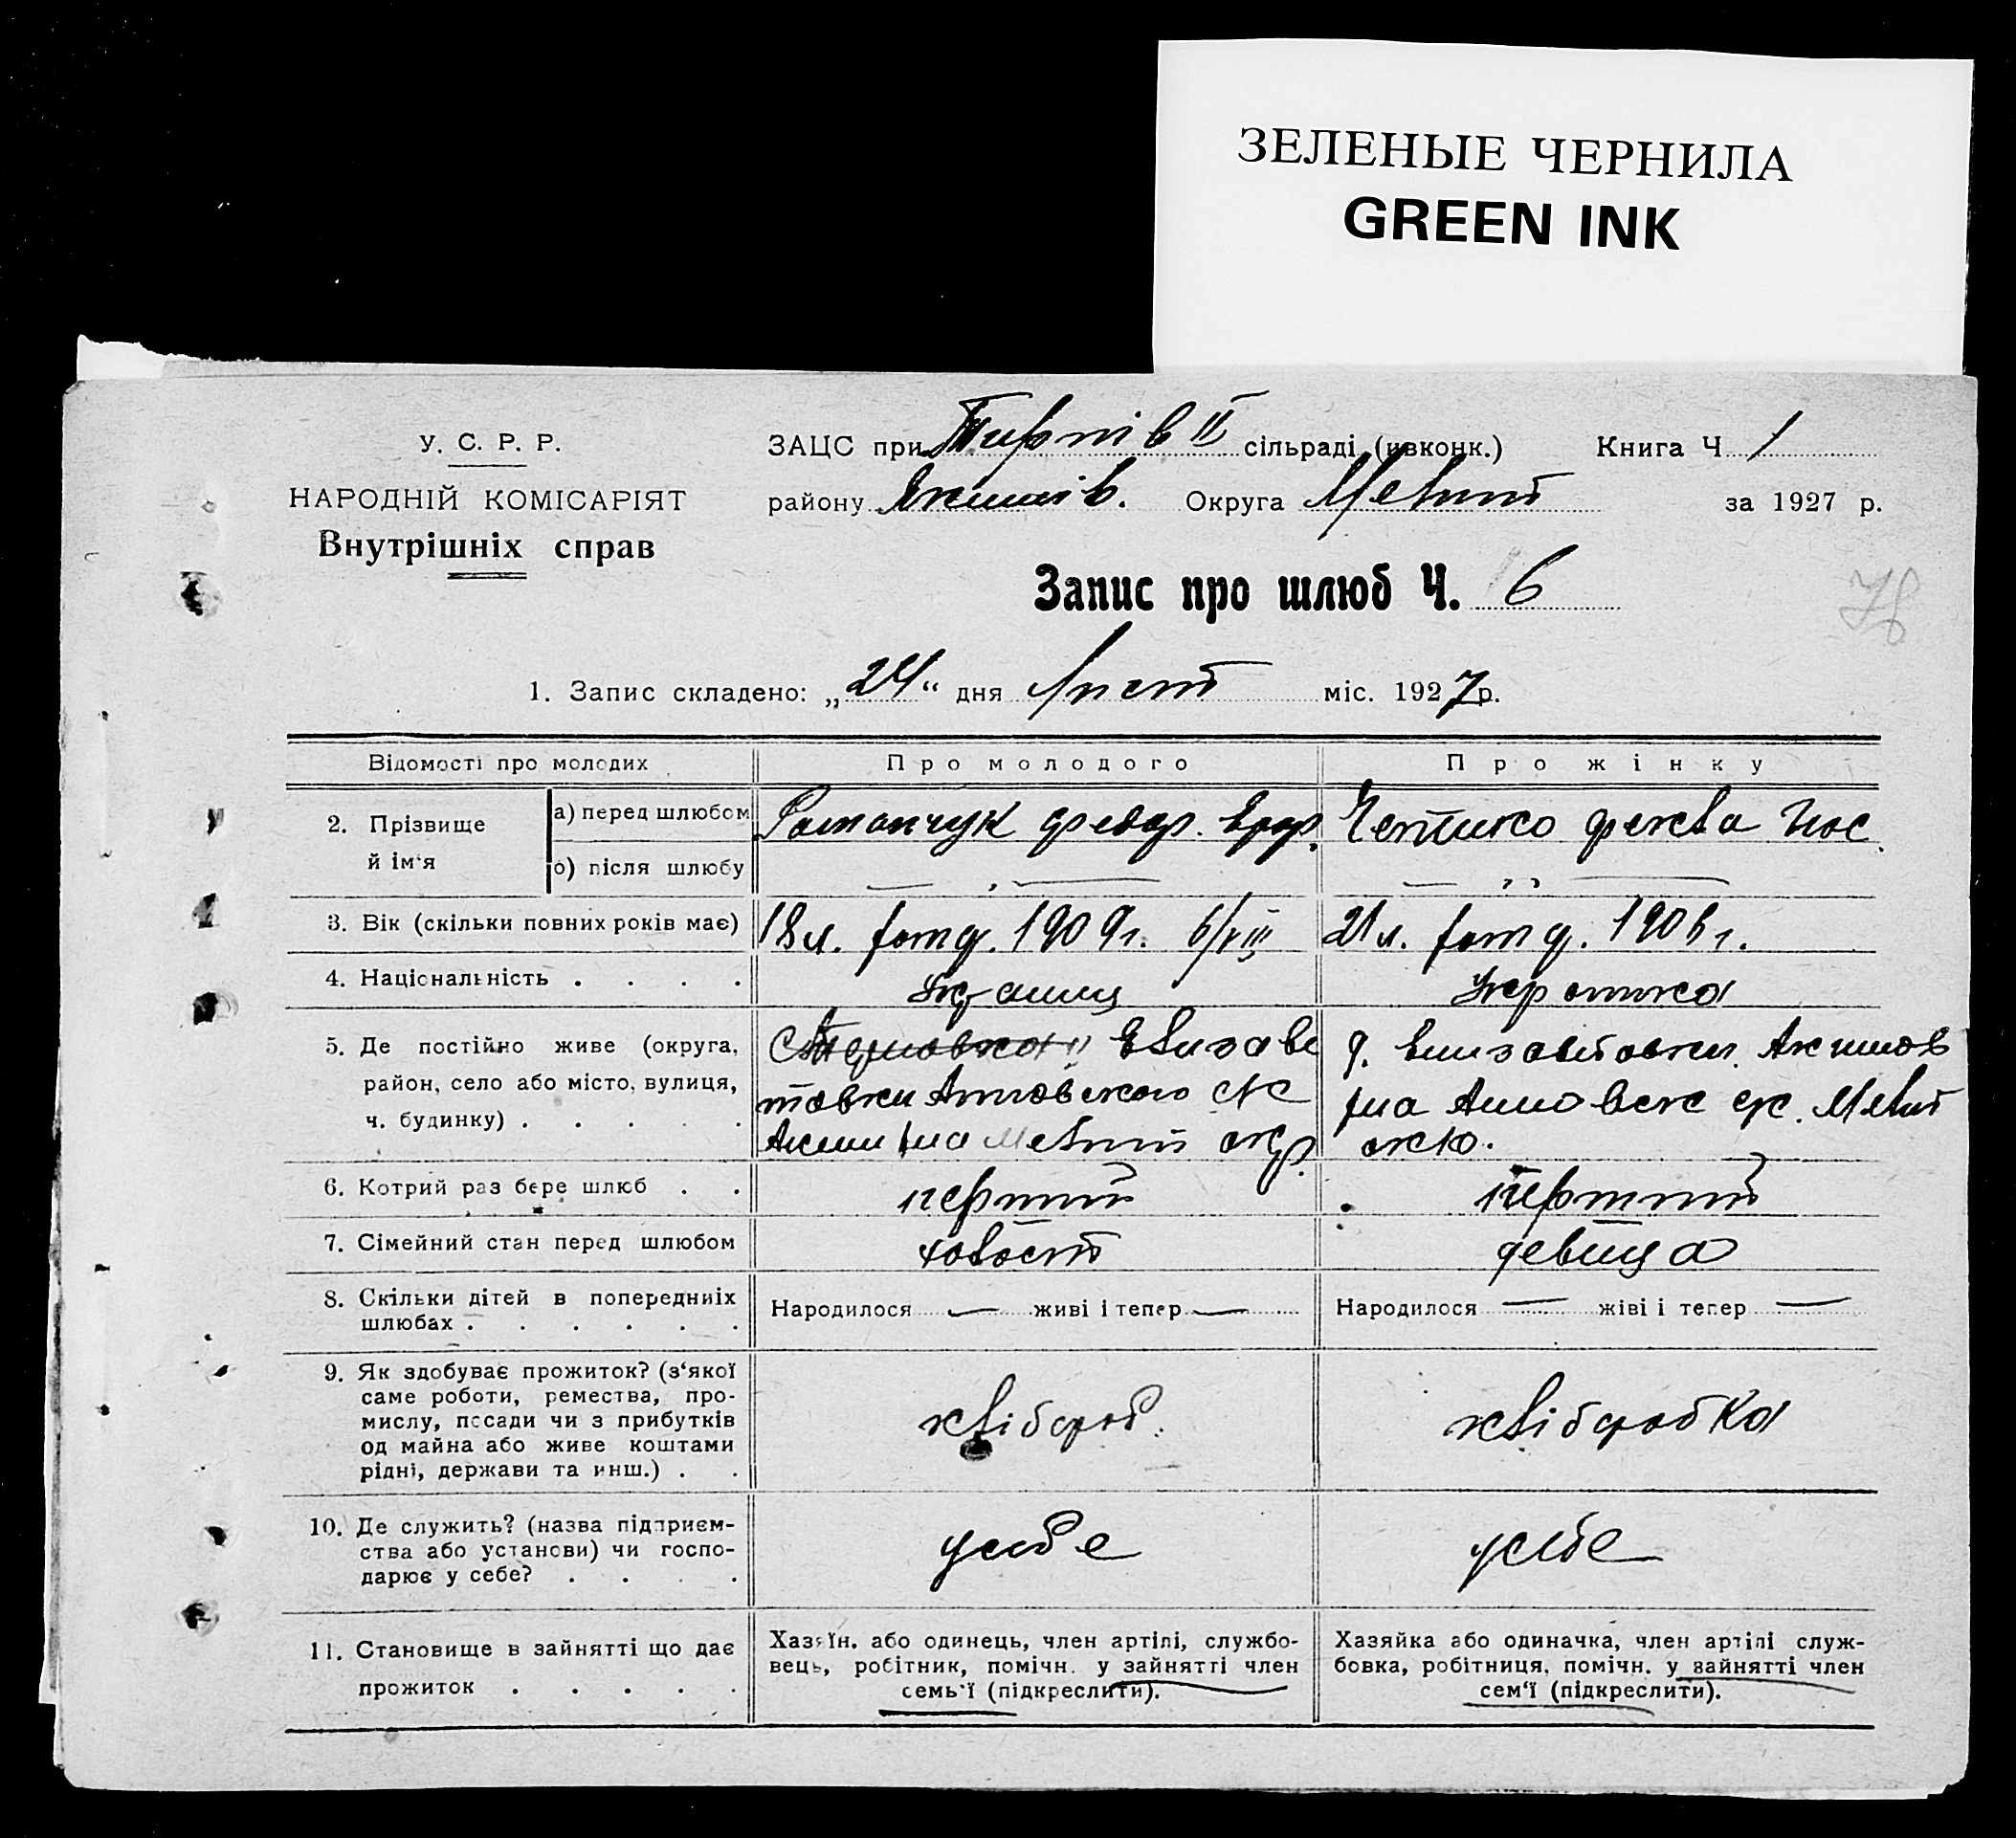 ЗЕЛЕНЫЕ ЧЕРНИЛА
GREEN INK
У. С. Р. Р.
НАРОДНІЙ КОМІСАРІЯТ
Внутрішніх справ
ЗАЦС при II сільраді (ивконк.) Книга Ч 1
району Якимів. Округа Меліт за 1927 р.
Запис про шлюб Ч. 6
78
1. Запис складено: „24“ дня Лист міс. 1927 р.
Відомості про молодих
Про молодого
Про жінку
2. Прізвище й ім‘я
а) перед шлюбом
Романчук Федор. Ероф.
Фекла
б) після шлюбу
— „ —
— „ —
3. Вік (скільки повних років має)
18 л. 1909 г. 6/VIII
21 л. 1906 г.
4. Національність . . . .
Українц
Українка
5. Де постійно живе (округа,
район, село або місто, вулиця,
ч. будинку) . . . . .
Елизаве
товки Анновского С/С
Аким р-на Меліт окр.
д. Елизаветовки Акимов
р-на Анновск с/с. Меліт
окр.
6. Котрий раз бере шлюб . .
перший
перший
7. Сімейний стан перед шлюбом
холост
девица
8. Скільки дітей в попередниіх
шлюбах . . . . . .
Народилося — живі і тепер —
Народилося — жіві і тепер —
9. Як здобуває прожиток? (з‘якої
саме роботи, ремества, про-
мислу, посади чи з прибутків
од майна або живе коштами
рідні, держави та инш.) . .
хлібороб.
хліборобка
10. Де служить? (назва підприєм-
ства або установи) чи госпо-
дарює у себе? . . . .
у себе
у себе
11. Становище в зайнятті що дає
прожиток . . . . .
Хазяїн. або одинець, член артілі, службо-
вець, робітник, помічн. у зайнятті член
семь‘ї (підкреслити).
Хазяйка або одиначка, член артілі служ-
бовка, робітниця, помічн. у зайнятті член
сем‘ї (підкреслити).